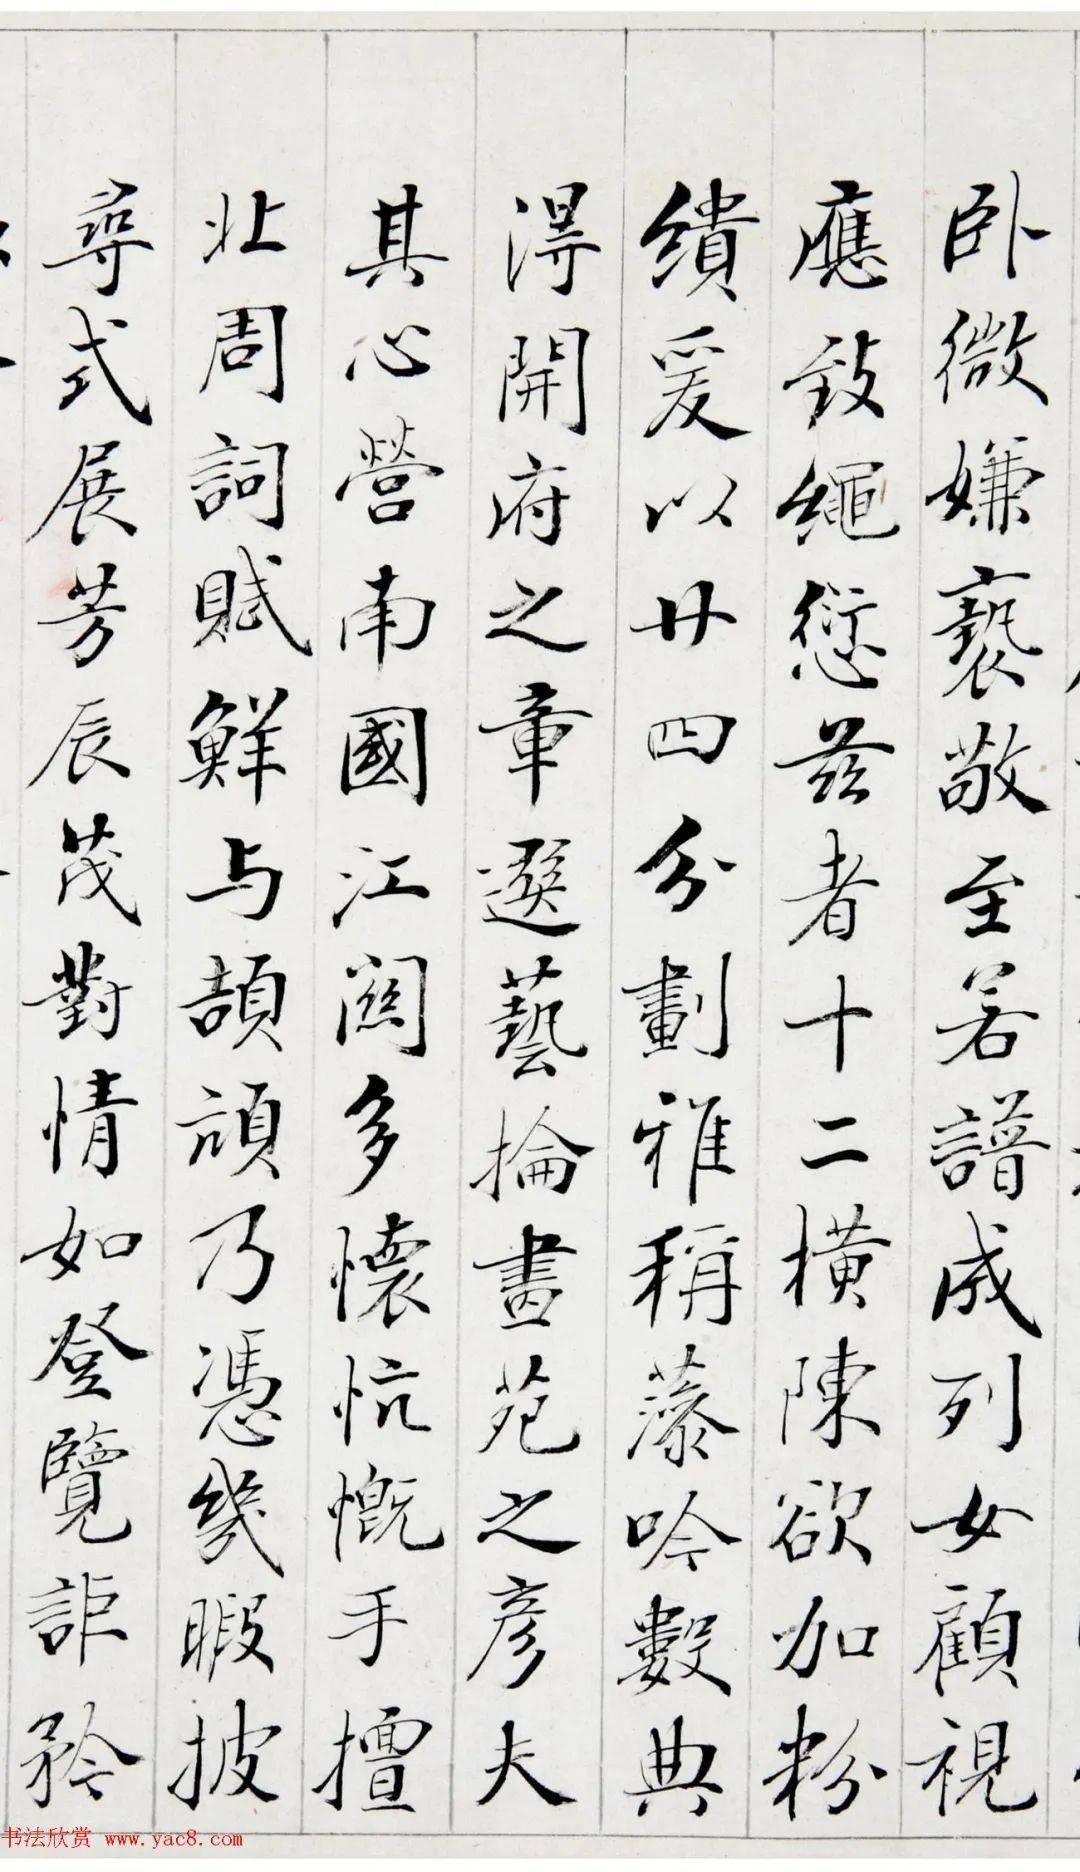 卧微嫌褻敬至若譜成列女顧視
應致繩愆兹者十二橫陳欲加粉
繢爰以廿四分劃雅稱藻吟數典
淂開府之章選藝掄畫苑之彦夫
其心營南國江關多懷忼慨手擅
北周詞賦鮮与頡頏乃憑幾暇披
尋式展芳辰茂對情如登覽詎矜
书法欣赏 www.yac8.com